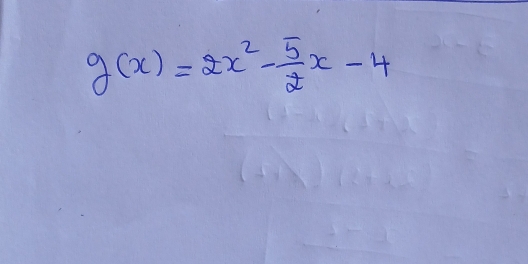 g(x) = 2x² - 5/2 x - 4